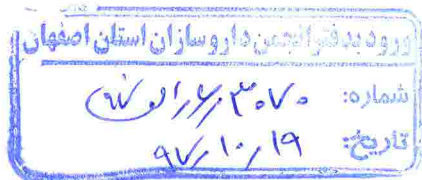 ورود به دفتر انجمن داروسازان استان اصفهان
شماره: ۳۰۷۰
تاریخ: ۹۷/۱۰/۱۹